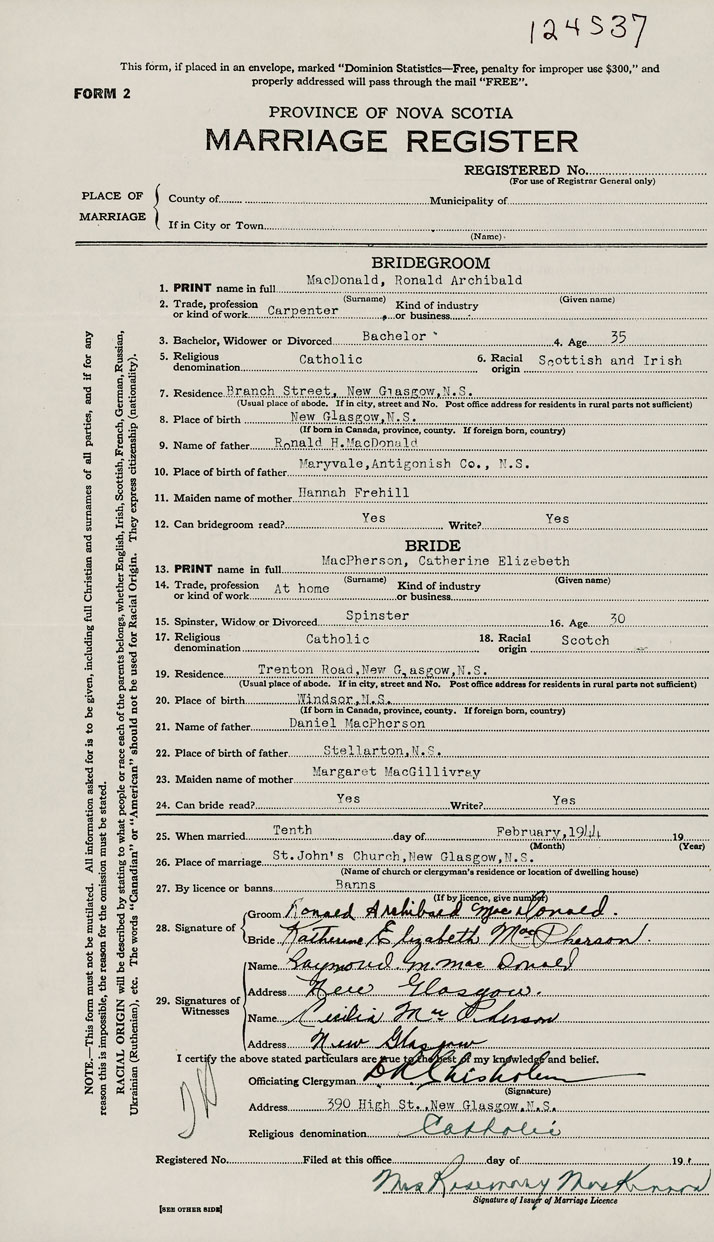 124537
This form, if placed in an envelope, marked "Dominion Statistics—Free, penalty for improper use $300," and
properly addressed will pass through the mail "FREE".
FORM 2
PROVINCE OF NOVA SCOTIA
MARRIAGE REGISTER
REGISTERED No.
(For use of Registrar General only)
PLACE OF MARRIAGE
County of Municipality of
If in City or Town
(Name)
BRIDEGROOM
1. PRINT name in full MacDonald, Ronald Archibald
(Surname) (Given name)
2. Trade, profession or kind of work Carpenter Kind of industry or business
3. Bachelor, Widower or Divorced Bachelor 4. Age 35
5. Religious denomination Catholic 6. Racial origin Scottish and Irish
7. Residence Branch Street, New Glasgow,N.S.
(Usual place of abode. If in city, street and No. Post office address for residents in rural parts not sufficient)
8. Place of birth New Glasgow,N.S.
(If born in Canada, province, county. If foreign born, country)
9. Name of father Ronald H.MacDonald
10. Place of birth of father Maryvale,Antigonish Co., N.S.
11. Maiden name of mother Hannah Frehill
12. Can bridegroom read? Yes Write? Yes
BRIDE
13. PRINT name in full MacPherson, Catherine Elizebeth
(Surname) (Given name)
14. Trade, profession or kind of work At home Kind of industry or business
15. Spinster, Widow or Divorced Spinster 16. Age 30
17. Religious denomination Catholic 18. Racial origin Scotch
19. Residence Trenton Road,New Glasgow,N.S.
(Usual place of abode. If in city, street and No. Post office address for residents in rural parts not sufficient)
20. Place of birth Windsor,N.S.
(If born in Canada, province, county. If foreign born, country)
21. Name of father Daniel MacPherson
22. Place of birth of father Stellarton,N.S.
23. Maiden name of mother Margaret MacGillivray
24. Can bride read? Yes Write? Yes
25. When married Tenth day of February,1944 19
(Month) (Year)
26. Place of marriage St.John's Church,New Glasgow,N.S.
(Name of church or clergyman's residence or location of dwelling house)
27. By licence or banns Banns
(If by licence, give number)
28. Signature of
Groom Ronald Archibald MacDonald.
Bride Katherine Elizabeth MacPherson.
29. Signatures of Witnesses
Name Raymond M. MacDonald
Address New Glasgow.
Name Cecilia MacPherson
Address New Glasgow
I certify the above stated particulars are true to the best of my knowledge and belief.
Officiating Clergyman Chisholm
(Signature)
Address 390 High St.,New Glasgow,N.S.
Religious denomination Catholic
Registered No. Filed at this office day of 19
Mrs Rosemary MacKinnon
Signature of Issuer of Marriage Licence
[SEE OTHER SIDE]
NOTE.—This form must not be mutilated. All information asked for is to be given, including full Christian and surnames of all parties, and if for any
reason this is impossible, the reason for the omission must be stated.
RACIAL ORIGIN will be described by stating to what people or race each of the parents belongs, whether English, Irish, Scottish, French, German, Russian,
Ukrainian (Ruthenian), etc. The words "Canadian" or "American" should not be used for Racial Origin. They express citizenship (nationality).